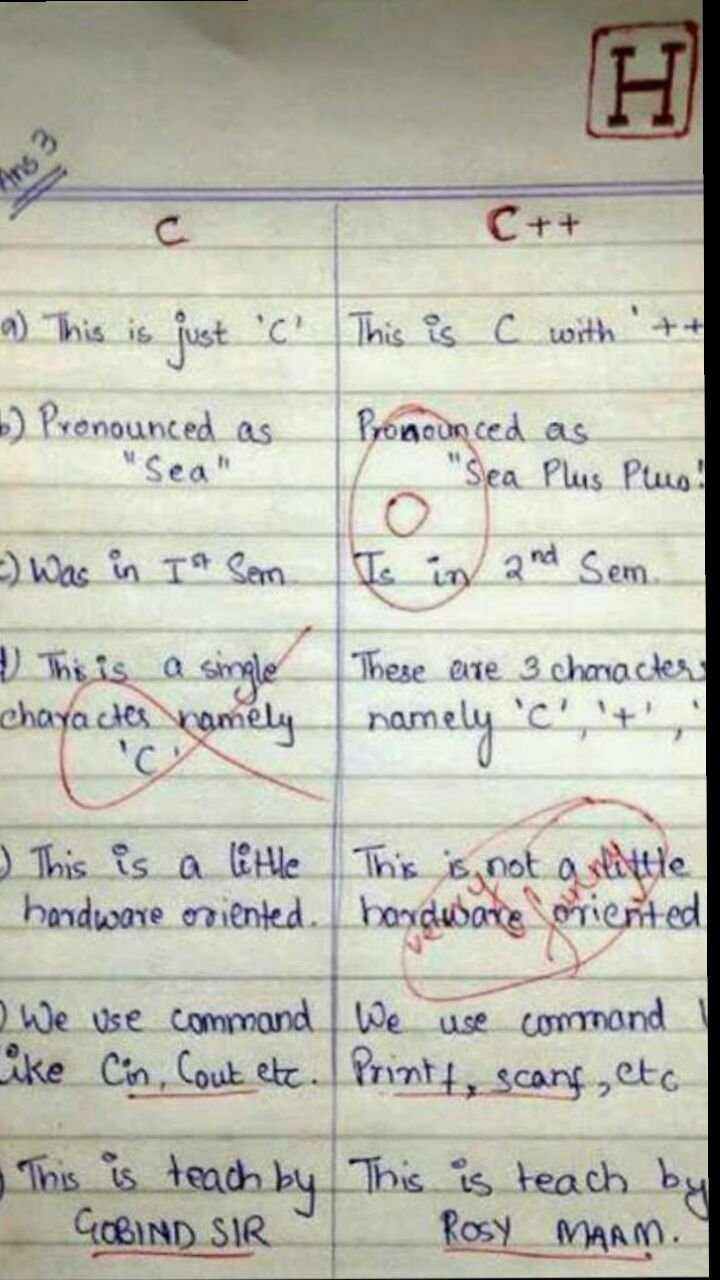 H
Ans 3
C
C++
a) This is just 'C'
This is C with '++
b) Pronounced as
"Sea"
Pronounced as
"Sea Plus Plus!
c) Was in Ist Sem
Is in 2nd Sem.
0
d) This is a single
character namely
'C'
These are 3 characters
namely 'C', '+', '
) This is a little
hardware oriented.
This is not a little
hardware oriented
very funny
) We use command
like Cin, Cout etc.
We use command
Printf, scanf, etc
) This is teach by
GOBIND SIR
This is teach by
ROSY MAAM.